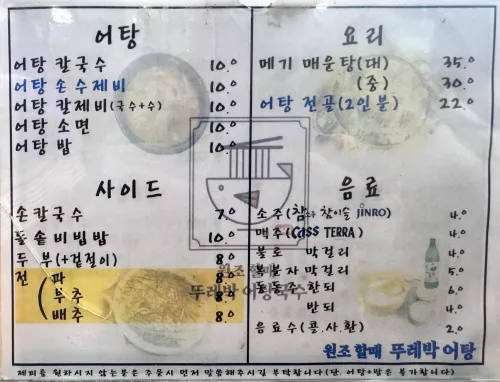 어탕
어탕 칼국수 10.⁰
어탕 손수제비 10.⁰
어탕 칼제비(국수+수) 10.⁰
어탕 소면 10.⁰
어탕 밥 10.⁰
요리
메기 매운탕(대) 35.⁰
(중) 30.⁰
어탕 전골(2인분) 22.⁰
사이드
손칼국수 7.⁰
돌솥비빔밥 10.⁰
두부(+겉절이) 8.⁰
전 (파 8.⁰
부추 8.⁰
배추 8.⁰
음료
소주( 참이슬 JINRO) 4.⁰
맥주(Cass TERRA) 4.⁰
불로 막걸리 4.⁰
막걸리 5.⁰
동동주 한되 6.⁰
반되 4.⁰
음료수(콜.사.환) 2.⁰
원조할매
뚜레박 어탕국수
원조할매 뚜레박 어탕
제피를 원하시지 않는분은 주문시 먼저 말씀해주시길 부탁합니다(단, 어탕+밥은 불가합니다)